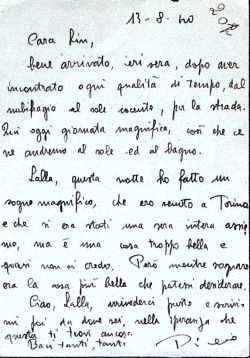 13-8-40
Cara Lin,
bene arrivato, ieri sera, dopo aver
incontrato ogni qualità di tempo, dal
nubifragio al sole cocente, per la strada.
Qui oggi giornata magnifica, così che ce
ne andremo al sole ed al bagno.
Lalla, questa notte ho fatto un
sogno magnifico, che ero venuto a Torino
e che si era stati una sera intera assie
me, ma è una cosa troppo bella e
quasi non ci credo. Però mentre sognavo
era la cosa più bella che potessi desiderare.
Ciao, Lalla, arrivederci presto e scrivi
mi poi da dove sei, nella speranza che
questa ti trovi ancora.
Baci tanti, tanti